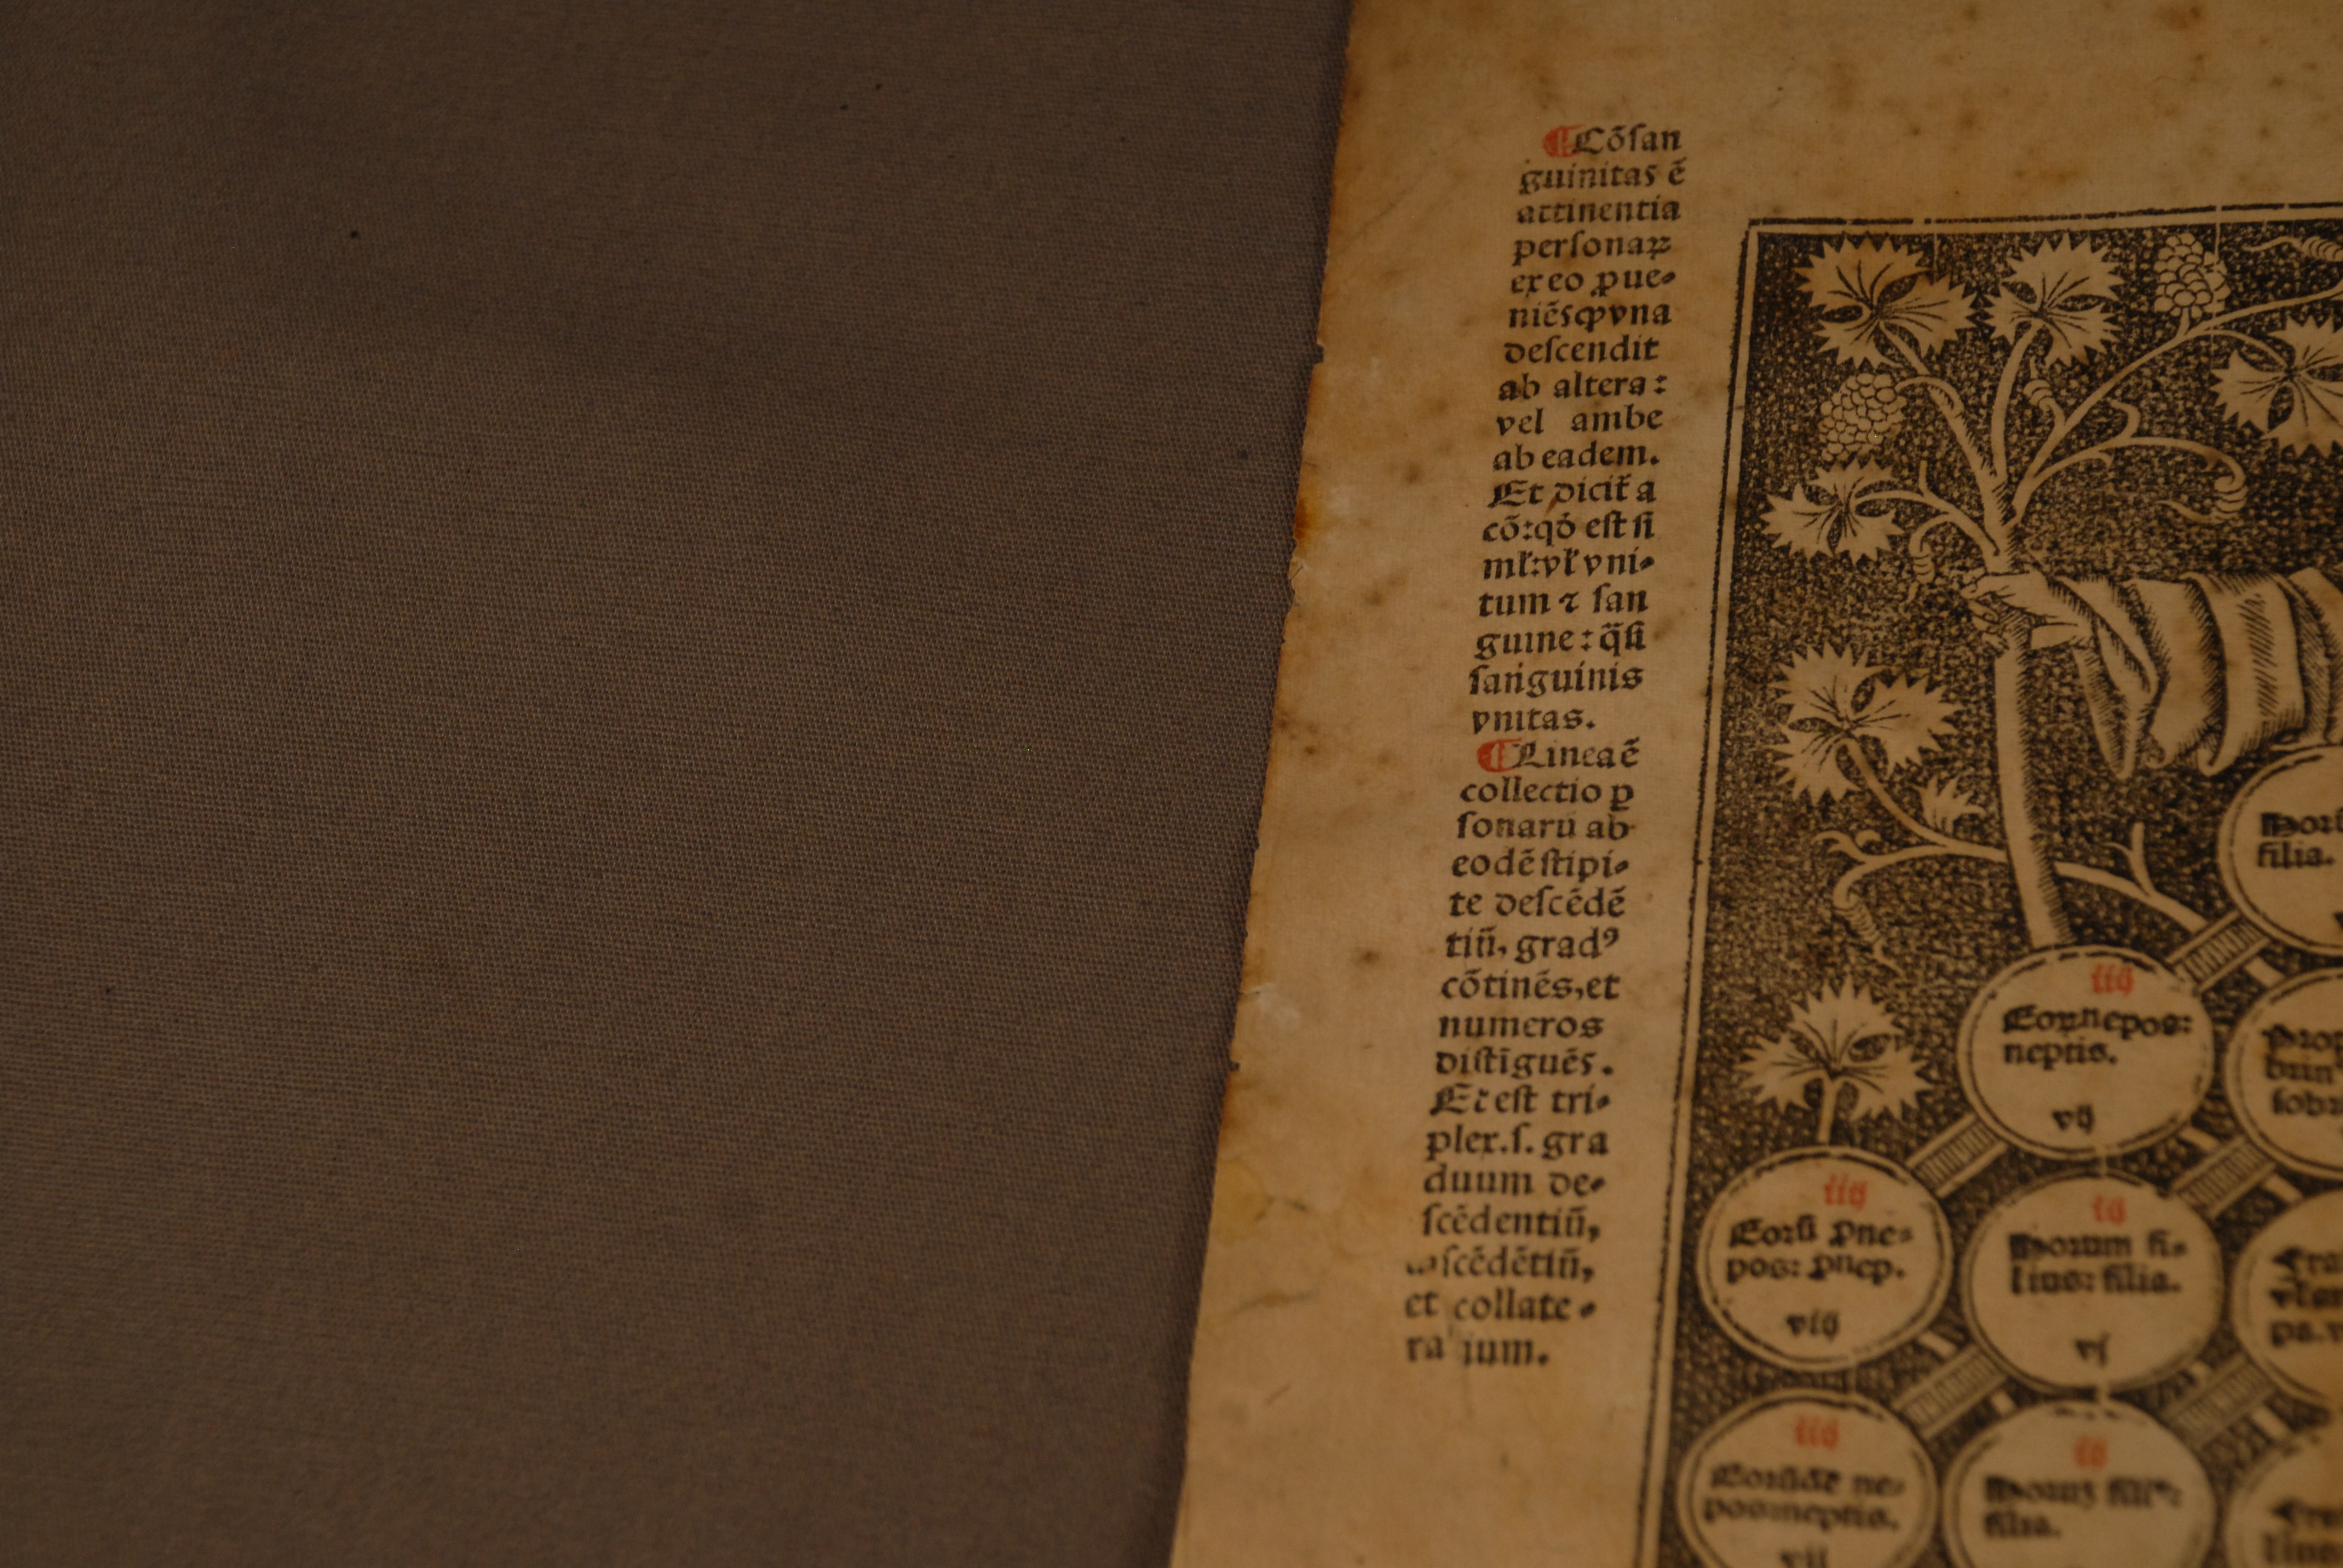 ¶Cōſan
guinitas ē
attinentia
perſonaꝝ
ex eo ꝓue⸗
niēs ꝙ vna
deſcendit
ab altera:
vel ambe
ab eadem.
Et dicit̄ a
cō: qđ eſt ſi
mł: vł vni⸗
tum ⁊ ſan
guine: q̈ſi
ſanguinis
vnitas.
¶Linea ē
collectio ꝑ
ſonarū ab
eodē ſtipi⸗
te deſcēdē
tiū, gradꝰ
cōtinēs, et
numeros
diſtīguēs.
Et eſt tri⸗
plex. ſ. gra
duum de⸗
ſcēdentiū,
aſcēdētiū,
et collate⸗
ra ium.
filia.
iiij
Eorūnepos:
neptis.
vij
iiij
Eorū ꝓne⸗
pos: ꝓnep.
viij
iij
Horum fi⸗
lius: filia.
vj
iiij
Eorūdē ne⸗
pos: neptis.
vij
iij
Horum filiꝰ:
filia.